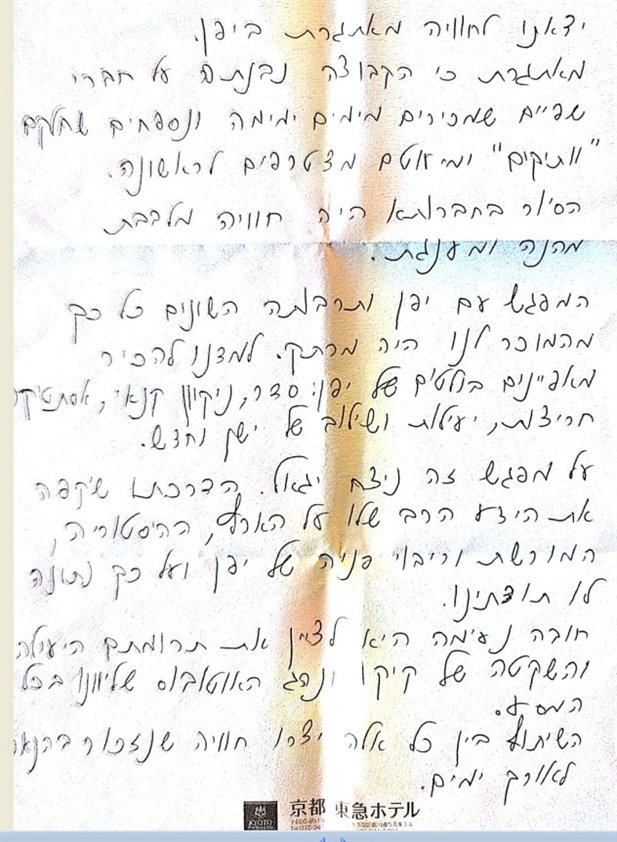 יצאנו לחוויה מאתגרת ביפן.
מאתגרת כי הקבוצה נבנתה על חברי
שפיים שמכירים מימים ימימה ונספחים שחלקם
"וותיקים" ומיעוטם מצטרפים לראשונה.
הסיור בחברותא היה חוויה מלבבת
מהנה ומענגת.
המפגש עם יפן ותרבותה השונים כל כך
מהמוכר לנו היה מרתק. למדנו להכיר
מאפיינים בולטים של יפן: סדר, ניקיון קנאי, אסתטיקה
חריצות, יעילות ושילוב של ישן וחדש.
על מפגש זה ניצח יגאל. הדרכתו שיקפה
את הידע הרב שלו על הארץ, ההיסטוריה,
המורשת וריבוי פניה של יפן ועל כך נתונה
לו תודתינו.
חובה נעימה היא לציין את תרומתם היעילה
והשקטה של קיקו ונהג האוטובוס שליוונו בכל
המסע.
השיתוף בין כל אלה יצרו חוויה שנזכור בהנאה
לאורך ימים.
京都 東急ホテル
KYOTO